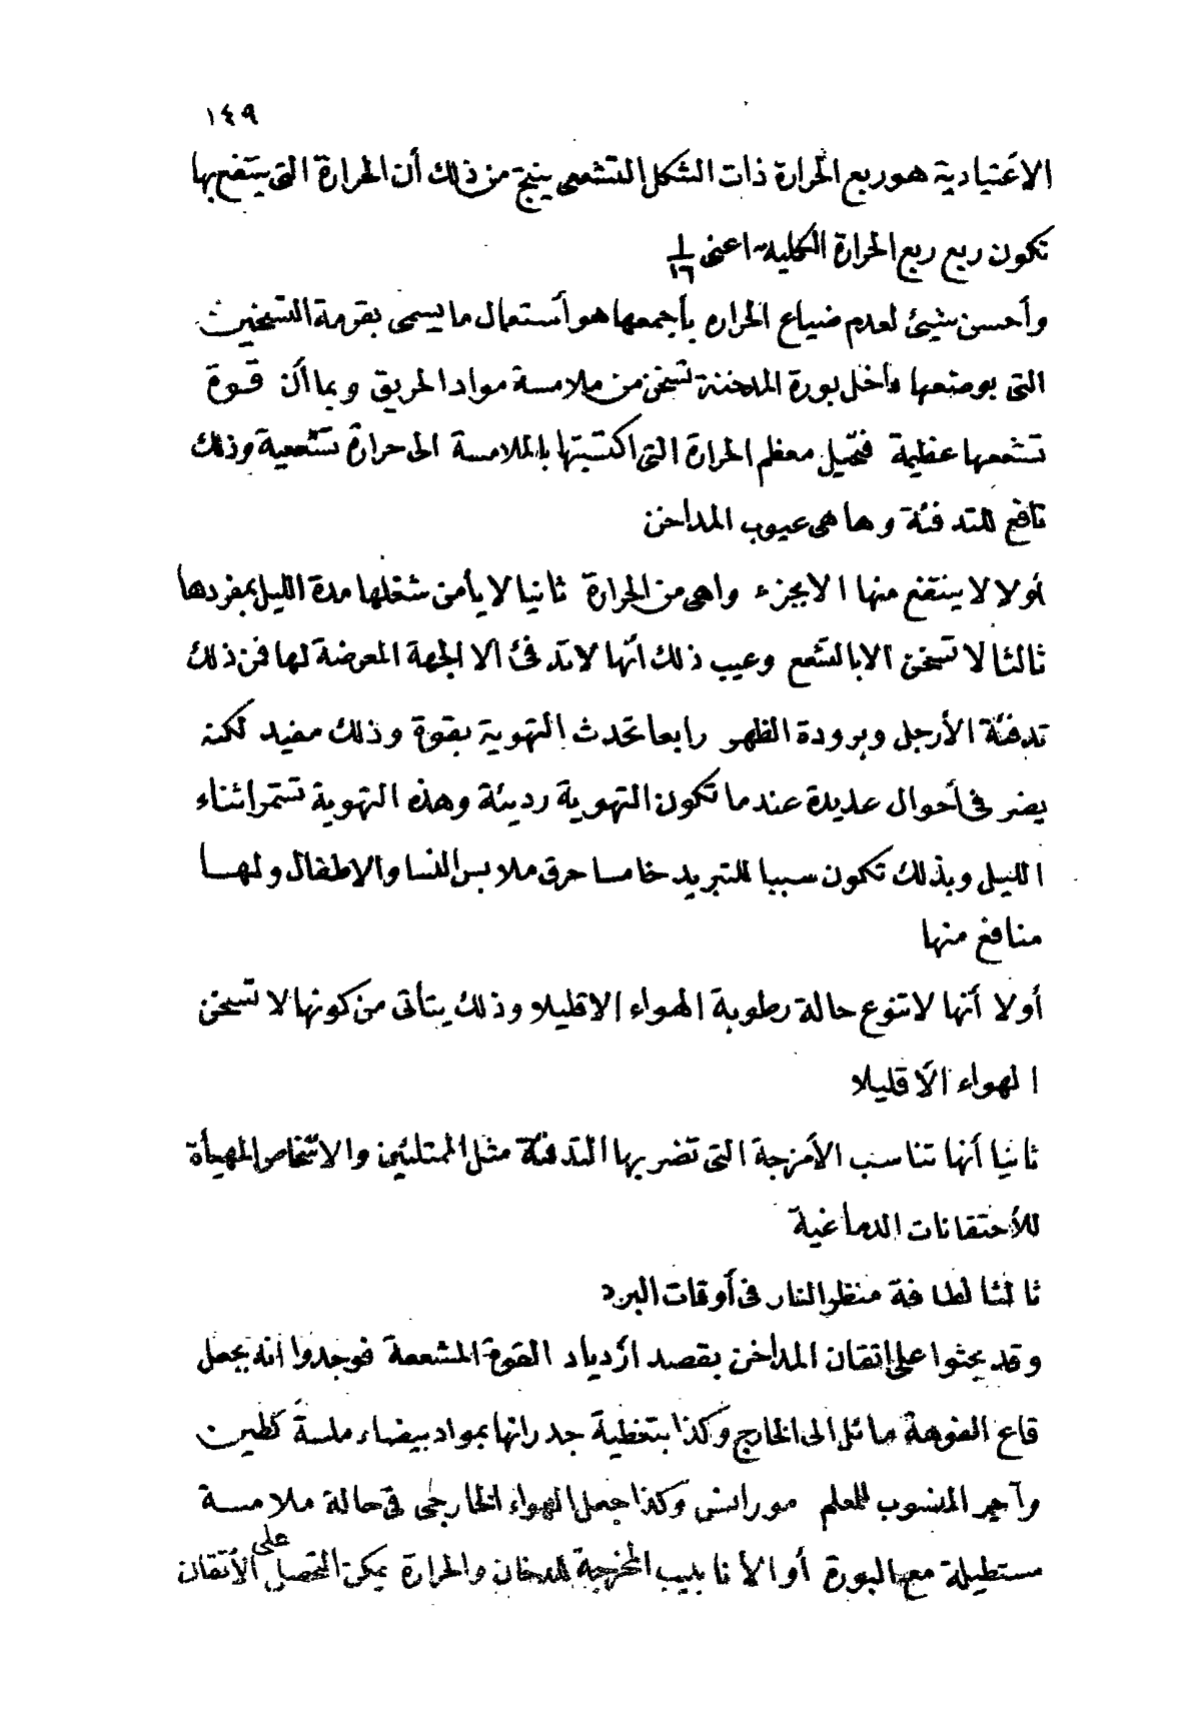 ١٤٩
الاعتيادية هو ربع الحرارة ذات الشكل التشععى ينتج من ذلك أن الحرارة التى ينتفع بها
تكون ربع ربع الحرارة الكلية اعنى ١/١٦
وأحسن شيئ لعدم ضياع الحراره بأجمعها هو أستعمال ما يسمى بقرمة التسخين
التى بوضعها داخل بورة المدخنة تسخن من ملامسة مواد الحريق وبما أن قوة
تشععها عظيمة فتحيل معظم الحرارة التى اكتسبتها بالملامسة الى حرارة تشععية وذلك
نافع للتدفئة وها هى عيوب المداخن
أولا لا ينتفع منها الا بجزء واهى من الحرارة ثانيا لا يأمن شغلها مدة الليل بمفردها
ثالثا لا تسخن الا بالتشعع وعيب ذلك انها لا تدفئ الا الجهة المعرضة لها فمن ذلك
تدفئة الأرجل وبرودة الظهر رابعا تحدث التهوية بقوة وذلك مفيد لكنه
يضر فى أحوال عديدة عندما تكون التهوية رديئة وهذه التهوية تستمر اثناء
الليل وبذلك تكون سببا للتبريد خامسا حرق ملابس النسا والاطفال ولهـا
منافع منها
أولا أنها لا تنوع حالة رطوبة الهواء الا قليلا وذلك يتأتى من كونها لا تسخن
الهواء الا قليلا
ثانيا أنها تناسب الأمزجة التى تضر بها التدفئة مثل الممتلئين والاشخاص المهيأة
للأحتقانات الدماغية
ثالثا لطافة منظر النار فى أوقات البرد
وقد بحثوا على اتقان المداخن بقصد ازدياد القوة المشععة فوجدوا انه بجعل
قاع الفوهة مائل الى الخارج وكذا بتغطية جدرانها بمواد بيضاء ملسة كطين
وآجر المنسوب للمعلم مورانس وكذا جعل الهواء الخارجى فى حالة ملامسة
مستطيلة مع البورة أو الأنابيب المخرجة للدخان والحرارة يمكن التحصل على الأتقان